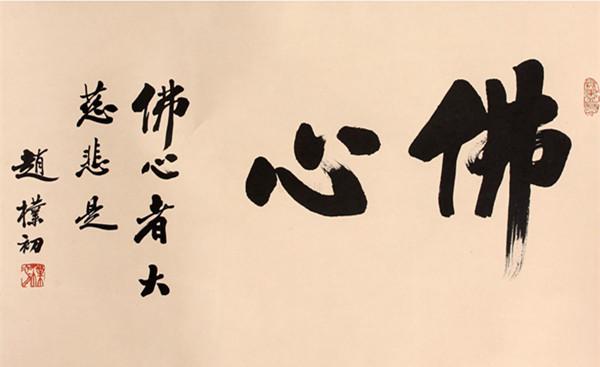 佛心
佛心者大
慈悲是
趙樸初